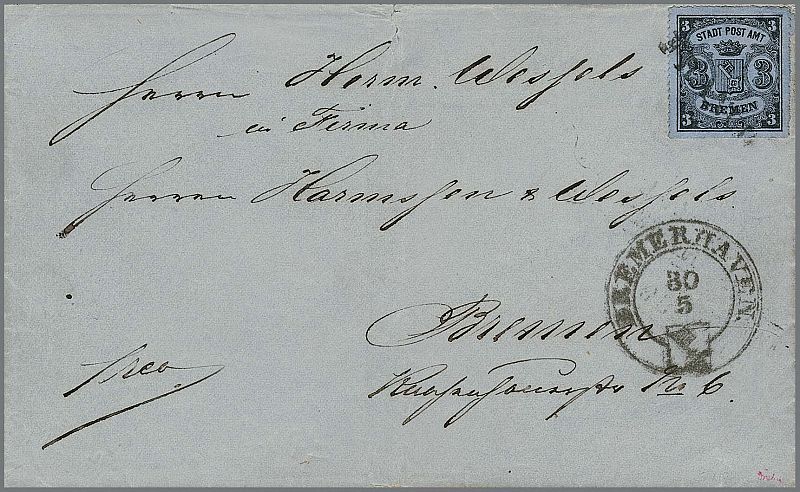 3 3
STADT POST AMT
3 3
BREMEN
3 3
Herrn Herm. Wessels
in Firma
Herren Harmssen & Wessels.
BREMERHAVEN.
30
5
Bremen
No 6.
frco